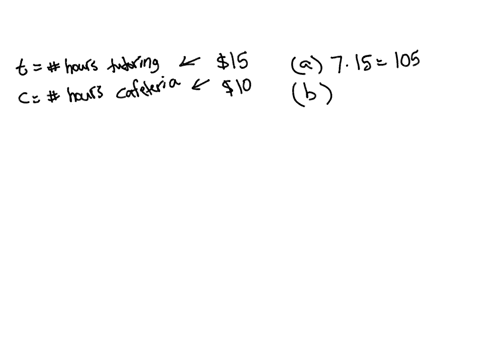 t = # hours tutoring ← $15
c = # hours cafeteria ← $10
(a) 7 · 15 = 105
(b)